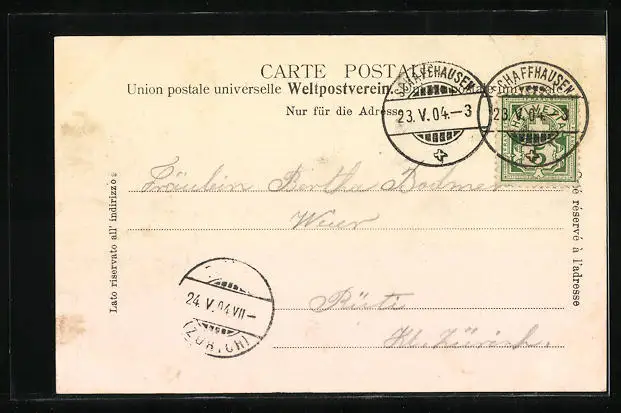 CARTE POSTALE.
Union postale universelle Weltpostverein. Unione postale universale
Nur für die Adresse
SCHAFFHAUSEN
23. V. 04.–3
SCHAFFHAUSEN
23. V. 04.
HELVETIA
5
Fräulein Bertha Bodmer
Weier
Rüti
Kt. Zürich.
Lato riservato all' indirizzo
Côté réservé à l'adresse
24. V. 04 VII–
(ZÜRICH)